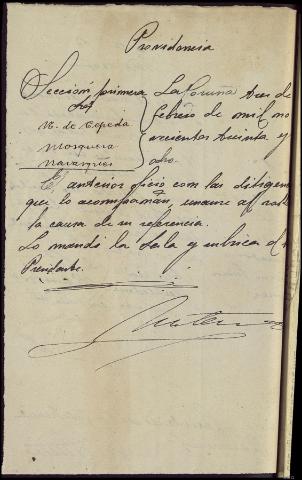 Providencia
Sección primera
Sres
M. de Cepeda
Mosquera
Navarques
La Coruña tres de
febrero de mil no
vecientos treinta y
ocho.
El anterior oficio con las diligen
que lo acompañan, unanse al
la causa de su referencia.
Lo mandó la Sala y rubrica el
Presidente.